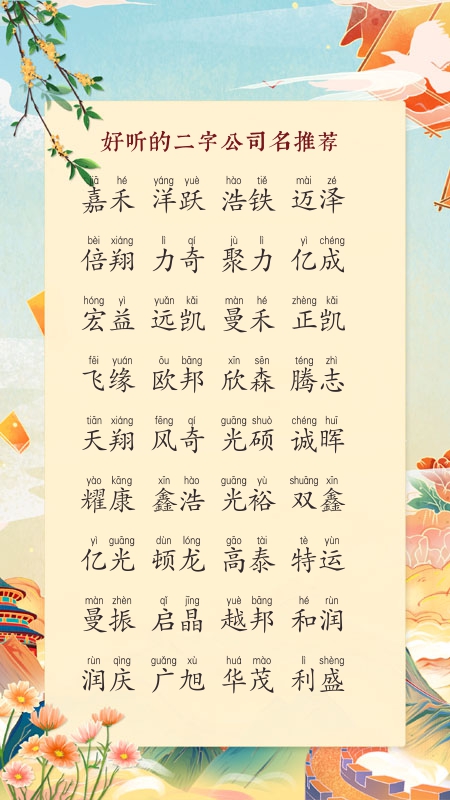 好听的二字公司名推荐
jiā hé yáng yuè hào tiě mài zé
嘉禾 洋跃 浩铁 迈泽
bèi xiáng lì qí jù lì yì chéng
倍翔 力奇 聚力 亿成
hóng yì yuǎn kǎi màn hé zhèng kǎi
宏益 远凯 曼禾 正凯
fēi yuán ōu bāng xīn sēn téng zhì
飞缘 欧邦 欣森 腾志
tiān xiáng fēng qí guāng shuò chéng huī
天翔 风奇 光硕 诚晖
yào kāng xīn hào guāng yù shuāng xīn
耀康 鑫浩 光裕 双鑫
yì guāng dùn lóng gāo tài tè yùn
亿光 顿龙 高泰 特运
màn zhèn qǐ jīng yuè bāng hé rùn
曼振 启晶 越邦 和润
rùn qìng guǎng xù huá mào lì shèng
润庆 广旭 华茂 利盛